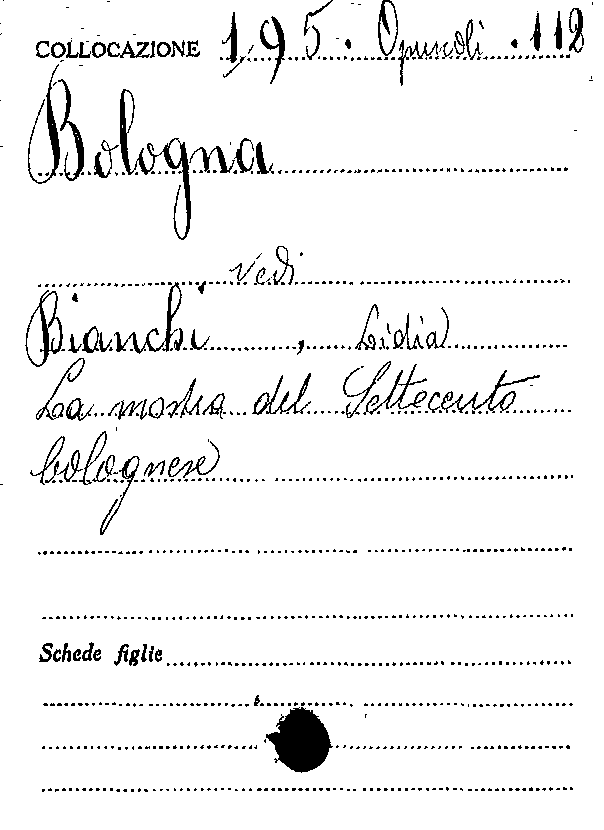 COLLOCAZIONE 195. Opuscoli .112
Bologna
Vedi
Bianchi, Lidia
La mostra del Settecento
bolognese
Schede figlie